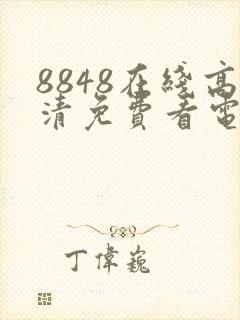 8848在綫高
清免費看電
丁偉巍